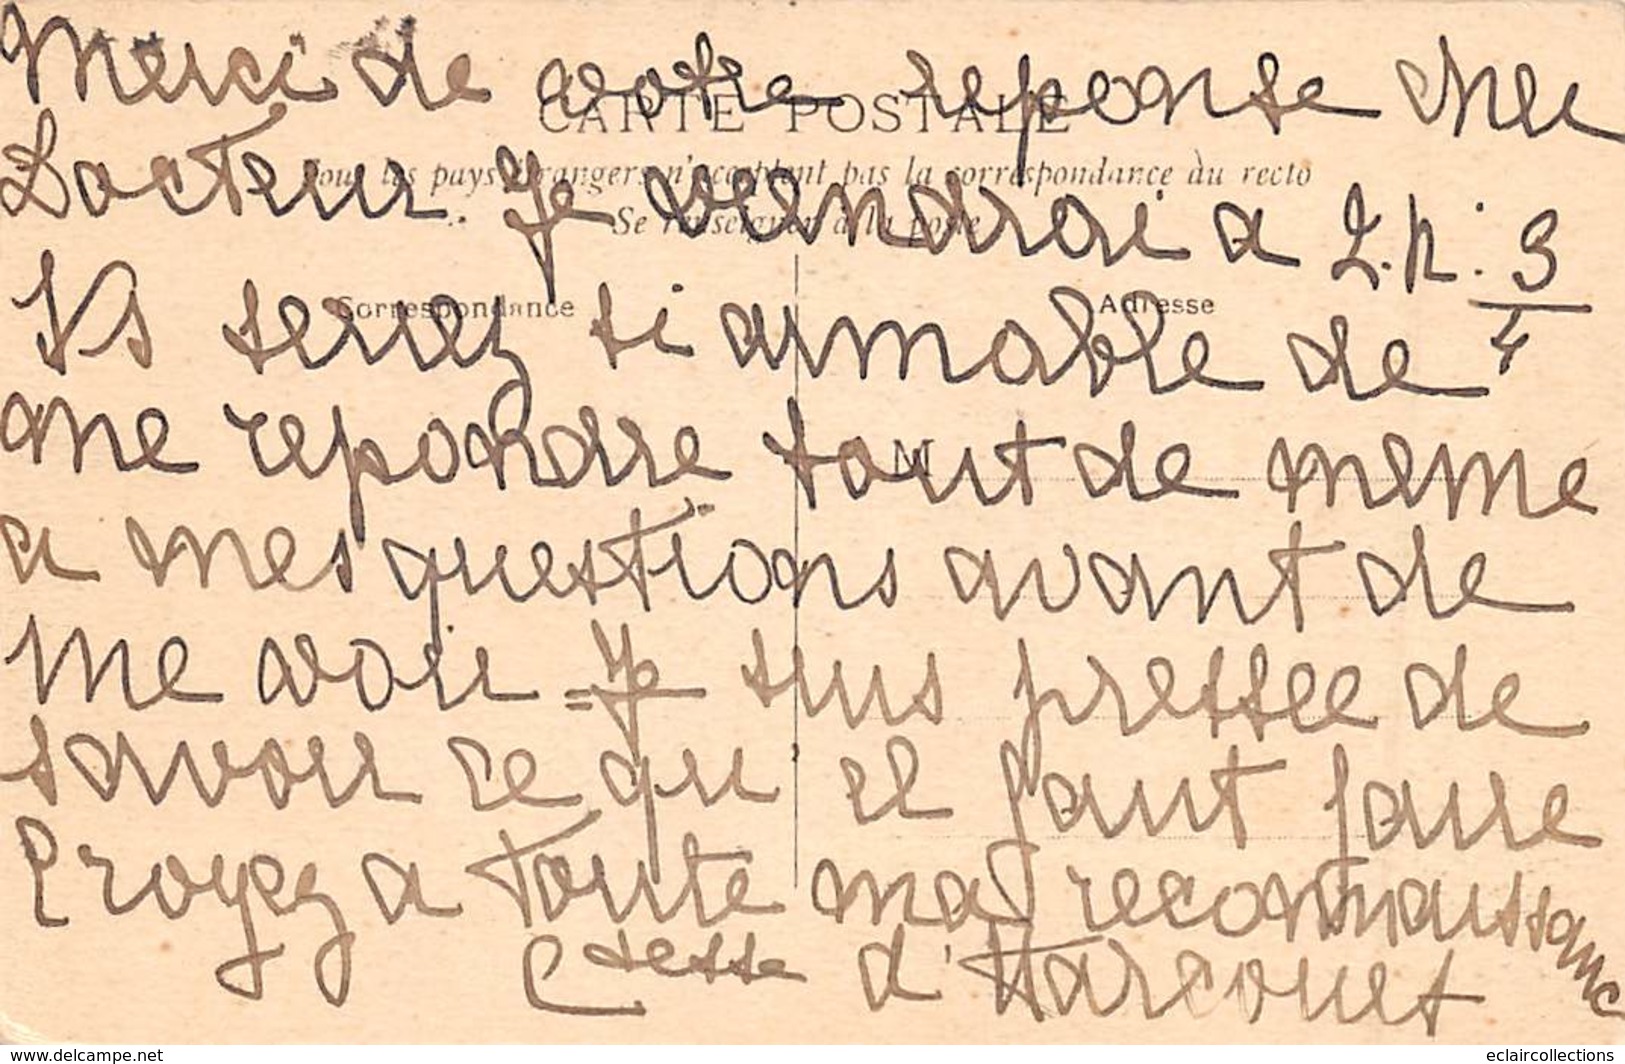 Merci de votre reponse cher
CARTE POSTALE
Tous les pays étrangers n'acceptent pas la correspondance au recto
Docteur. Je viendrai a 2.h. 3/4
Se renseigner à la poste
Correspondance
Adresse
Vs serez si aimable de
me repondre tout de meme
M
a mes questions avant de
me voir = Je suis pressee de
savoir ce qu il faut faire
Croyez a toute ma reconnaissance
Ctesse d'Harcourt
www.delcampe.net
eclaircollections